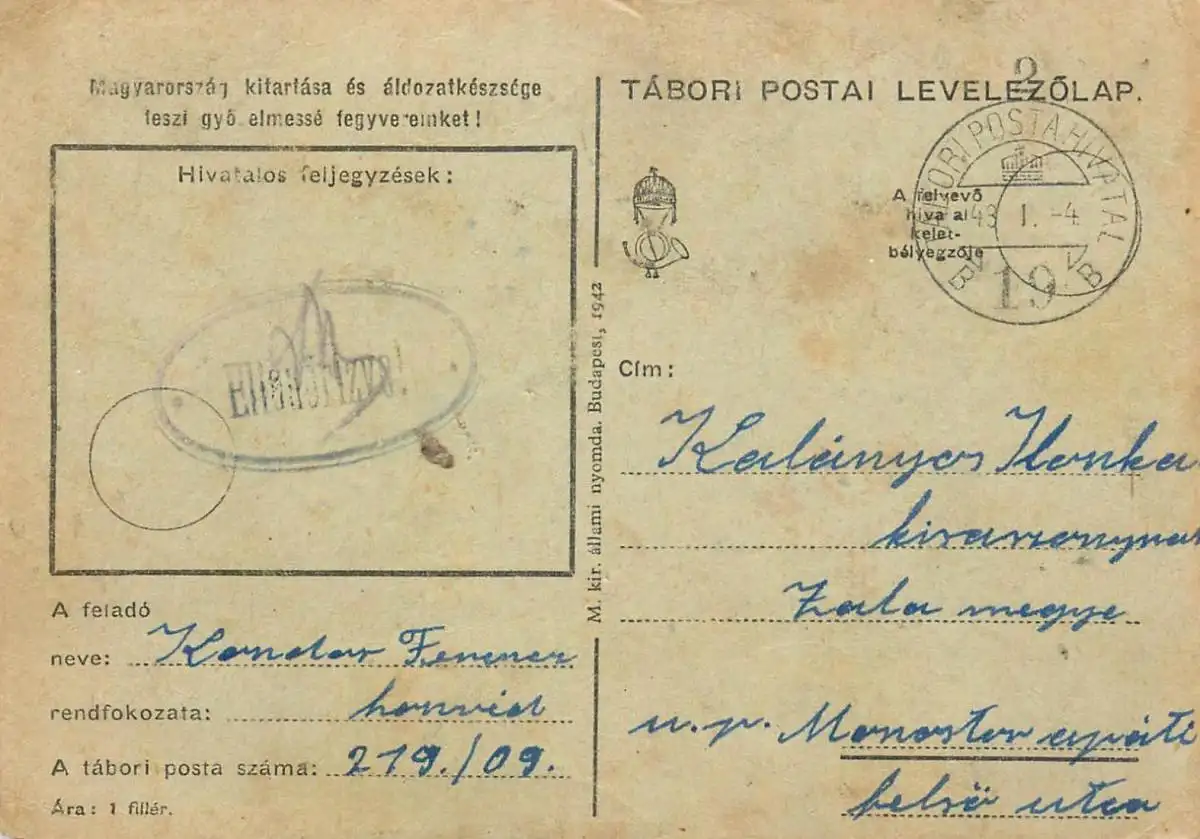 Magyarország kitartása és áldozatkészsége
teszi győzelmessé fegyvereinket!
Hivatalos feljegyzések:
Ellenőrizve!
A feladó
neve: Kondor Ferencz
rendfokozata: honvéd
A tábori posta száma: 219./09.
Ára: 1 fillér.
M. kir. állami nyomda. Budapest, 1942
TÁBORI POSTAI LEVELEZŐLAP.
2
TÁBORI POSTAHIVATAL
A felvevő
hivatal
kelet-
bélyegzője
43 I. -4
B 19 B
Cím:
Kalányos Ilonka
kisasszonynak
Zala megye
u.p. Monostorapáti
belső utca